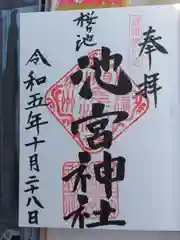 奉拝
桜ヶ池
池宮神社
令和五年十月二十八日